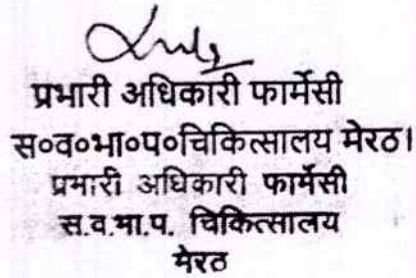 प्रभारी अधिकारी फार्मेसी
स०व०भा०प०चिकित्सालय मेरठ।
प्रभारी अधिकारी फार्मेसी
स.व.भा.प. चिकित्सालय
मेरठ